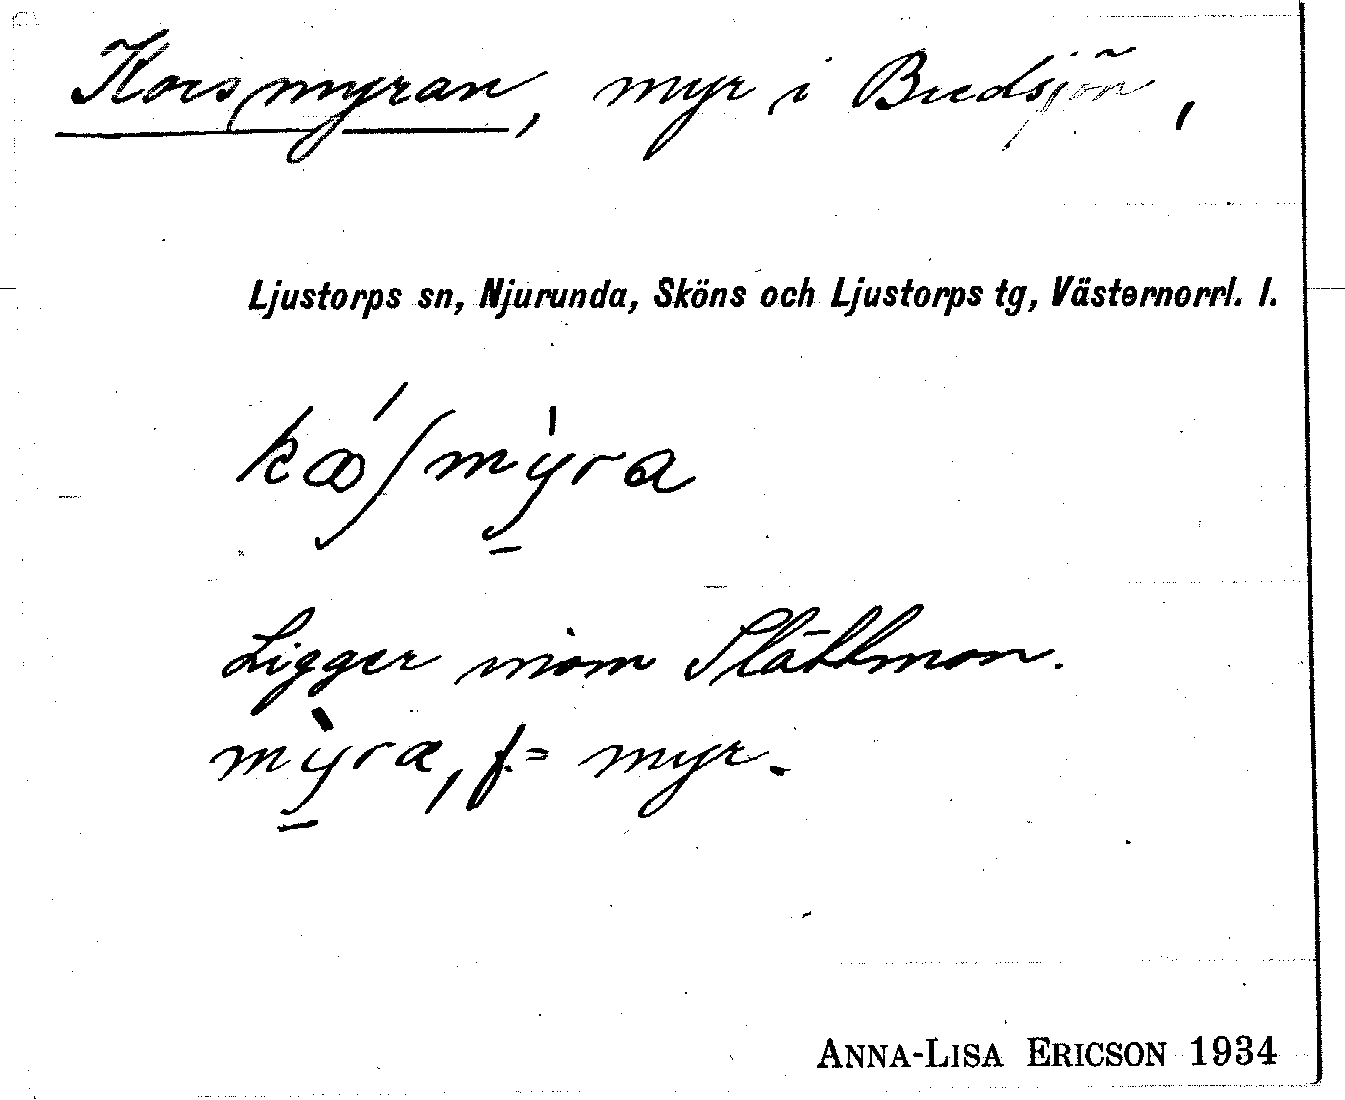 Korsmyran, myr i Bredsjön,
Ljustorps sn, Njurunda, Sköns och Ljustorps tg, Västernorrl. l.
kꝏ́ʃmỳ̠ra
Ligger inom Slättmon.
mỳ̠ra, f. = myr.
ANNA-LISA ERICSON 1934